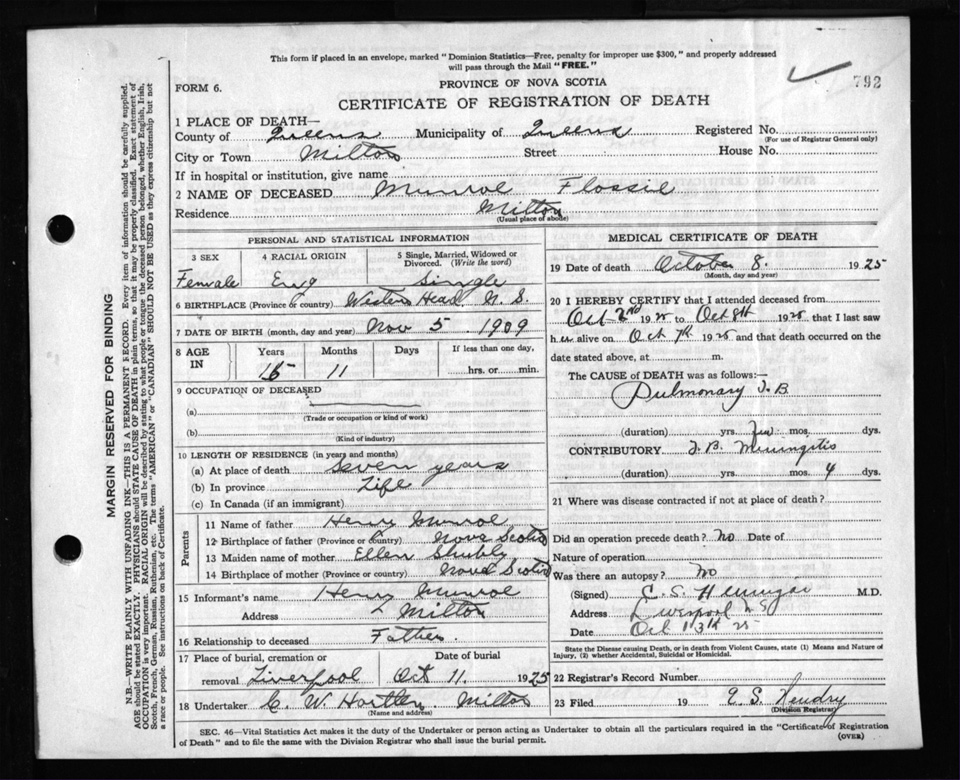 This form if placed in an envelope, marked "Dominion Statistics—Free, penalty for improper use $300," and properly addressed
will pass through the Mail "FREE."
792
PROVINCE OF NOVA SCOTIA
FORM 6.
CERTIFICATE OF REGISTRATION OF DEATH
1 PLACE OF DEATH—
County of Queens Municipality of Queens Registered No.
(For use of Registrar General only)
City or Town Milton Street House No.
If in hospital or institution, give name
2 NAME OF DECEASED Munroe Flossie
Residence Milton
(Usual place of abode)
PERSONAL AND STATISTICAL INFORMATION
3 SEX 4 RACIAL ORIGIN 5 Single, Married, Widowed or Divorced. (Write the word)
Female Eng Single
6 BIRTHPLACE (Province or country) Western Head N. S.
7 DATE OF BIRTH (month, day and year) Nov 5 1909
8 AGE IN Years Months Days If less than one day,
15 11 hrs. or min.
9 OCCUPATION OF DECEASED
(a)
(Trade or occupation or kind of work)
(b)
(Kind of industry)
10 LENGTH OF RESIDENCE (in years and months)
(a) At place of death Seven years
(b) In province Life
(c) In Canada (if an immigrant)
Parents
11 Name of father Henry Munroe
12 Birthplace of father (Province or country) Nova Scotia
13 Maiden name of mother Ellen
14 Birthplace of mother (Province or country) Nova Scotia
15 Informant's name Henry Munroe
Address Milton
16 Relationship to deceased Father.
17 Place of burial, cremation or removal Liverpool Date of burial Oct 11. 1925
18 Undertaker C. W. Hartlen Milton
(Name and address)
MEDICAL CERTIFICATE OF DEATH
19 Date of death October 8. 1925
(Month, day and year)
20 I HEREBY CERTIFY that I attended deceased from
Oct 2nd 1925 to Oct 8th 1925 that I last saw
her alive on Oct 7th 1925 and that death occurred on the
date stated above, at m.
The CAUSE of DEATH was as follows:—
Pulmonary T. B.
(duration) yrs. mos. dys.
CONTRIBUTORY T. B. Meningitis
(duration) yrs. mos. 4 dys.
21 Where was disease contracted if not at place of death?
Did an operation precede death? No Date of
Nature of operation
Was there an autopsy? No
(Signed) M.D.
Address Liverpool N S
Date Oct 13th 25
State the Disease causing Death, or in death from Violent Causes, state (1) Means and Nature of
Injury, (2) whether Accidental, Suicidal or Homicidal.
22 Registrar's Record Number
23 Filed 19 E. S. Hendry
(Division Registrar)
SEC. 46—Vital Statistics Act makes it the duty of the Undertaker or person acting as Undertaker to obtain all the particulars required in the "Certificate of Registration
of Death" and to file the same with the Division Registrar who shall issue the burial permit.
(OVER)
MARGIN RESERVED FOR BINDING
N.B.—WRITE PLAINLY WITH UNFADING INK—THIS IS A PERMANENT RECORD. Every item of information should be carefully supplied.
AGE should be stated EXACTLY. PHYSICIANS should STATE CAUSE OF DEATH in plain terms, so that it may be properly classified. Exact statement of
OCCUPATION is very important. RACIAL ORIGIN will be described by stating to what people or tongue the deceased person belonged, whether English, Irish,
Scotch, French, German, Russian, Ruthenian, etc. The terms "AMERICAN" or "CANADIAN" SHOULD NOT BE USED as they express citizenship but not
a race or people. See instructions on back of Certificate.